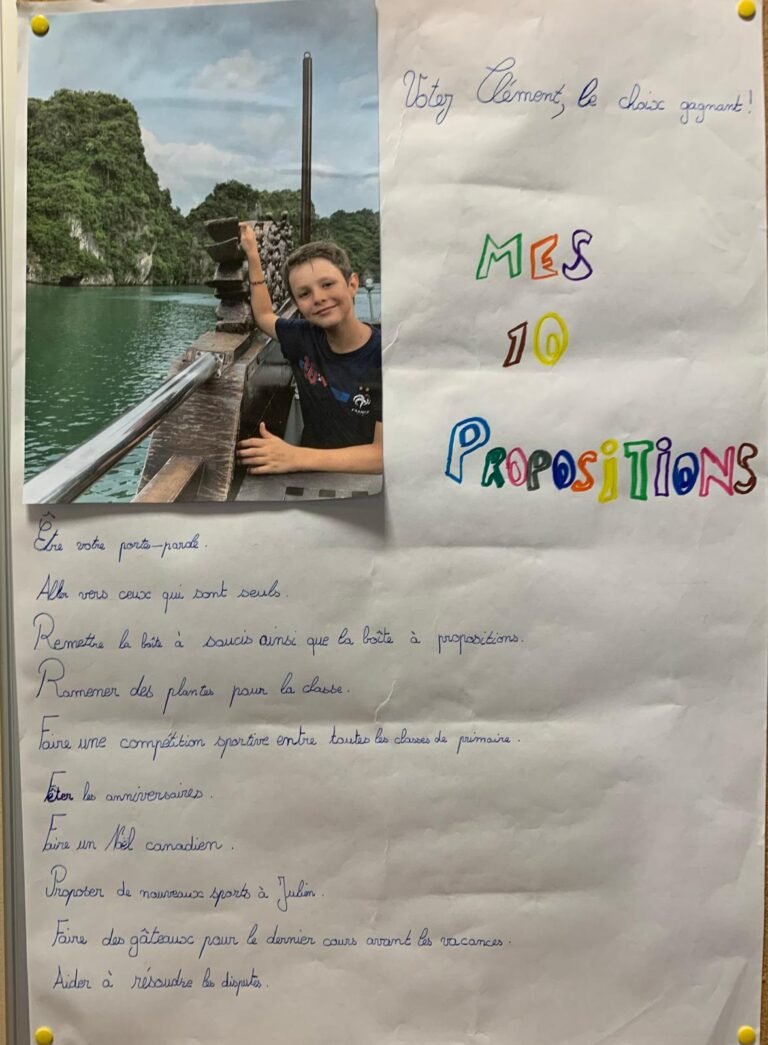 Votez Clément, le choix gagnant!
MES
10
PROPOSITIONS
FRANCE
Être votre porte-parole.
Aller vers ceux qui sont seuls.
Remettre la boîte à soucis ainsi que la boîte à propositions.
Ramener des plantes pour la classe.
Faire une compétition sportive entre toutes les classes de primaire.
Fêter les anniversaires.
Faire un Noël canadien.
Proposer de nouveaux sports à Julien.
Faire des gâteaux pour le dernier cours avant les vacances.
Aider à résoudre les disputes.